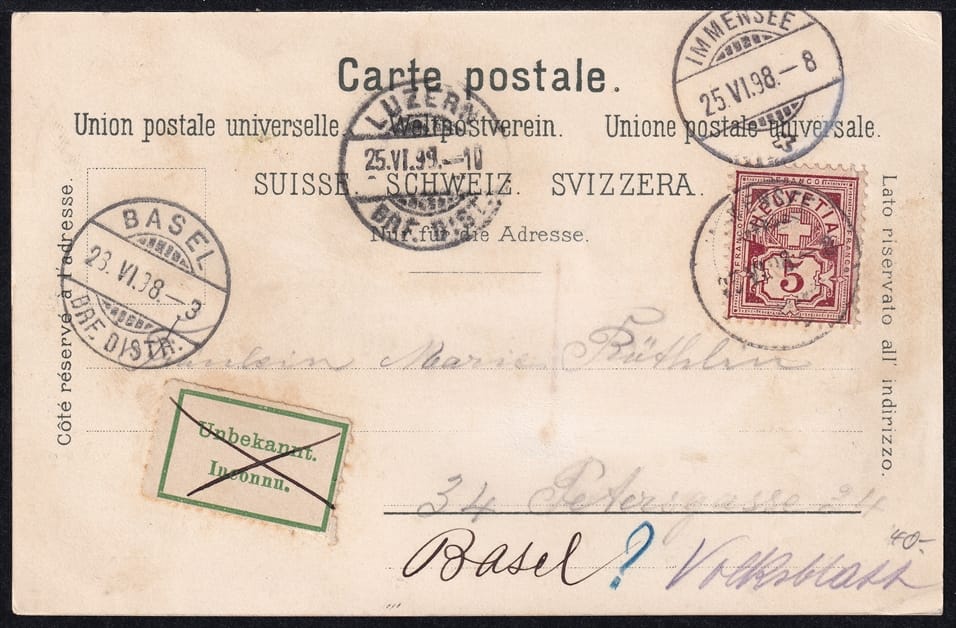 Carte postale.
Union postale universelle. Weltpostverein. Unione postale universale.
SUISSE. SCHWEIZ. SVIZZERA.
Nur für die Adresse.
Côté réservé à l'adresse.
Lato riservato all' indirizzo.
IMMENSEE
25.VI.98.–8
LUZERN
25.VI.98.–10
BRF. DIST.
BASEL
23.VI.98.–3
BRF. DISTR.
FRANCO
HELVETIA
FRANCO
FRANCO
5
Fräulein Marie
34 Petersgasse 34
Unbekannt.
Inconnu.
Basel ? Volksblatt
40-